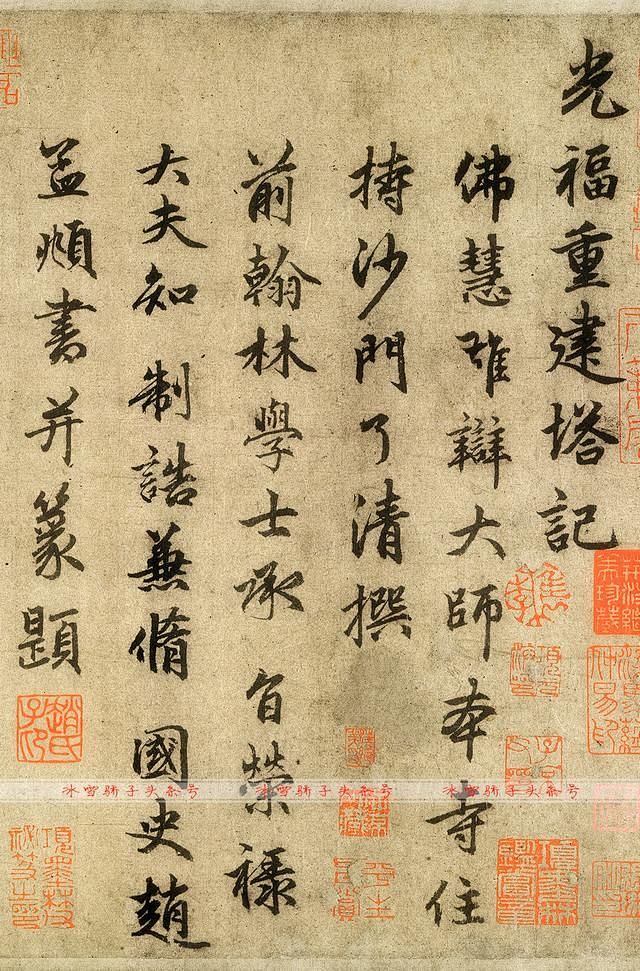 光福重建塔記
佛慧雄辯大師本寺住
持沙門了清撰
前翰林學士承旨榮祿
大夫知制誥兼脩國史趙
孟頫書并篆題
趙氏子昂
冰雪骄子头条号 冰雪骄子头条号 冰雪骄子头条号